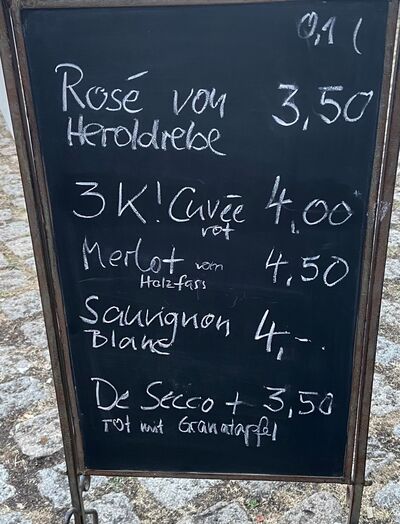 0,1 l
Rosé von 3,50
Heroldrebe
3K! Cuvée 4,00
rot
Merlot vom 4,50
Holzfass
Sauvignon 4,-.
Blanc
De Secco + 3,50
rot mit Granatapfel